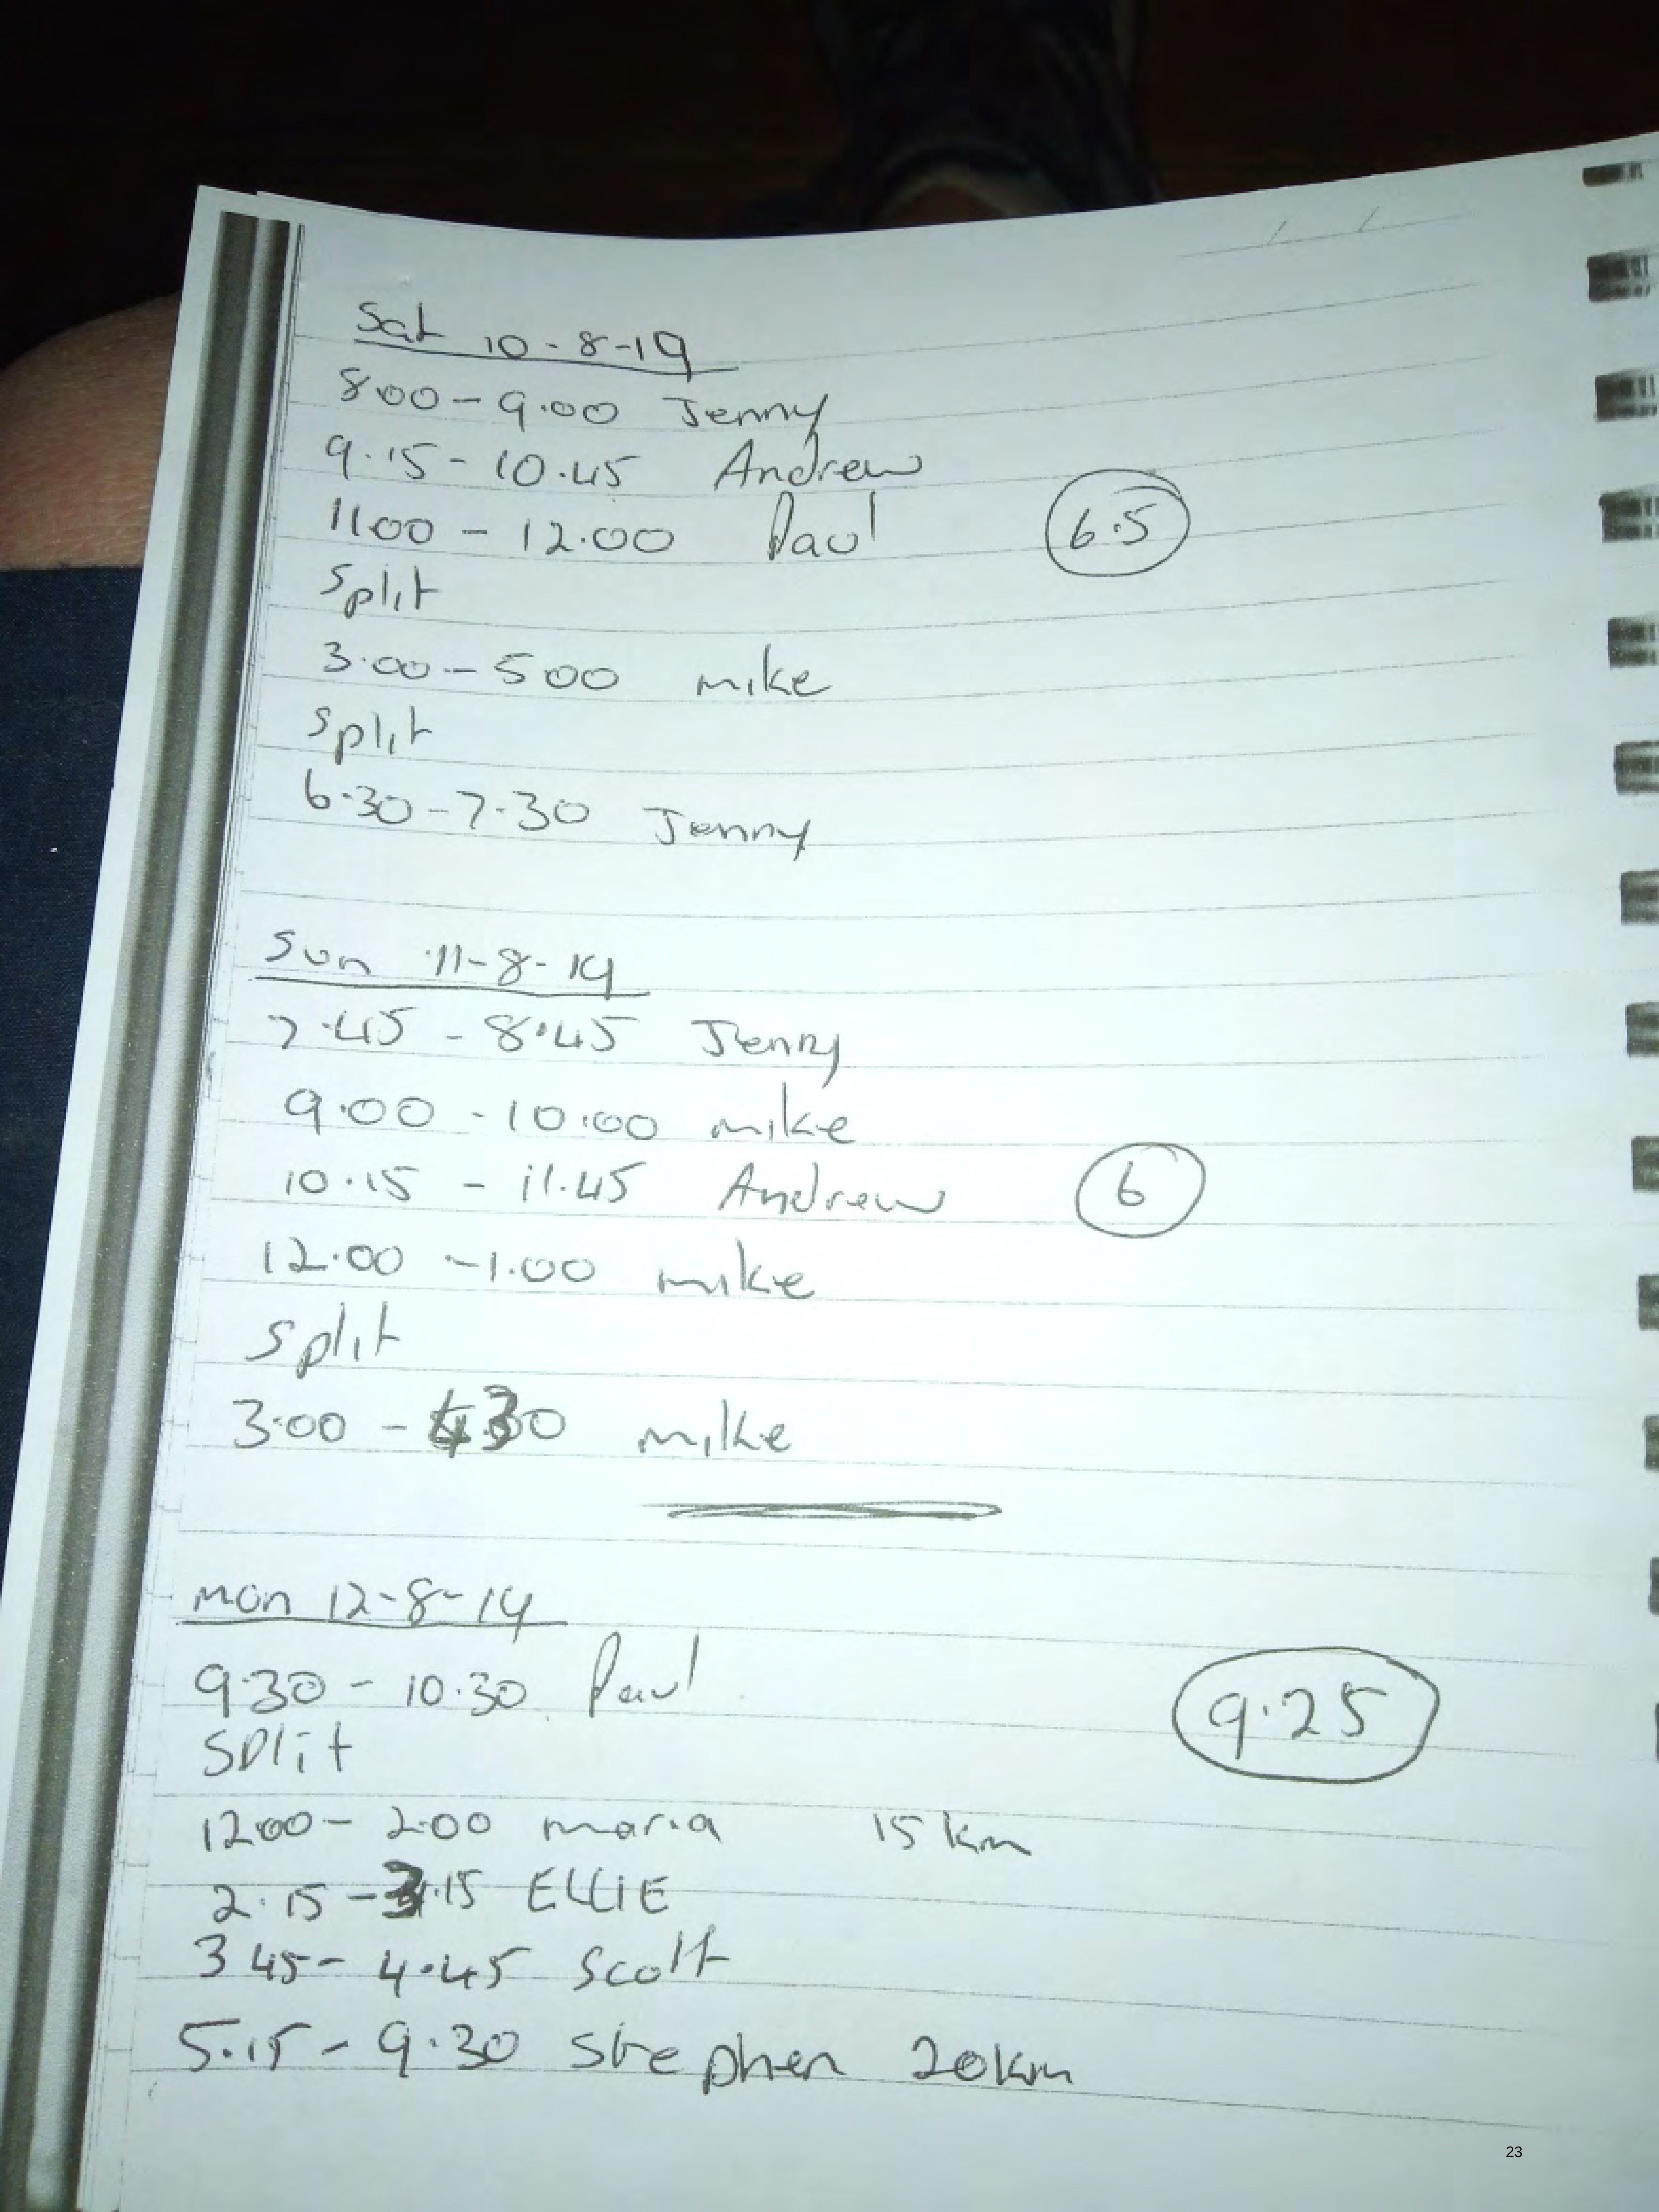 Sat 10-8-19
8.00-9.00 Jenny
9.15-10.45 Andrew
11.00-12.00 Paul
6.5
Split
3.00-5.00 mike
Split
6.30-7.30 Jenny
Sun 11-8-19
7.45-8.45 Jenny
9.00-10.00 mike
10.15-11.45 Andrew
6
12.00-1.00 mike
Split
3.00-4.30 mike
Mon 12-8-19
9.30-10.30 Paul
9.25
SPlit
12.00-2.00 maria 15km
2.15-3.15 ELLIE
3.45-4.45 Scott
5.15-9.30 Stephen 20km
23